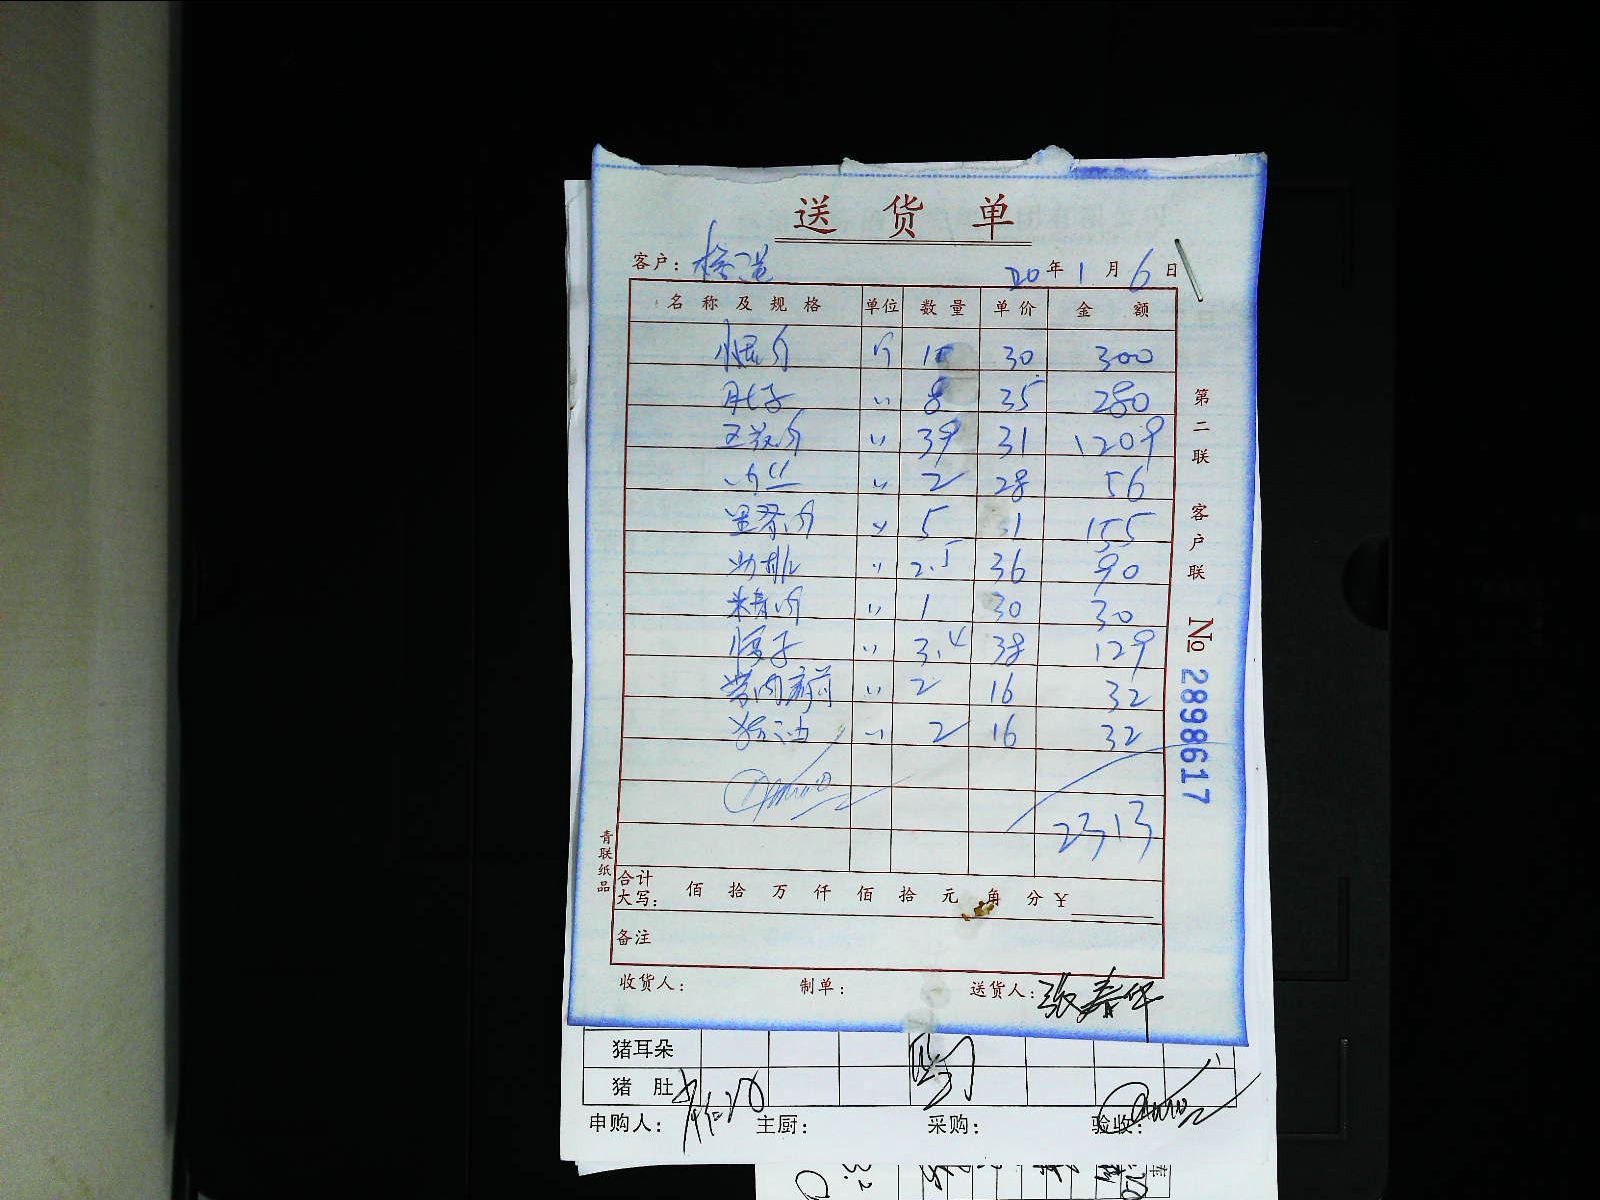 送货单
客户：
20年1月6日
名称及规格 单位 数量 单价 金额
斤 10 30 300
肚子 〃 8 35 280
五花肉 〃 39 31 1209
肉丝 〃 2 28 56
里脊肉 〃 5 31 155
肋排 〃 2.5 36 90
精肉 〃 1 30 30
〃 3.4 38 129
〃 2 16 32
猪油 〃 2 16 32
2313
合计大写： 佰 拾 万 仟 佰 拾 元 角 分 ¥
备注
收货人： 制单： 送货人：张春华
第二联 客户联
No 2898617
青联纸品
猪耳朵
猪肚
申购人： 主厨： 采购： 验收：